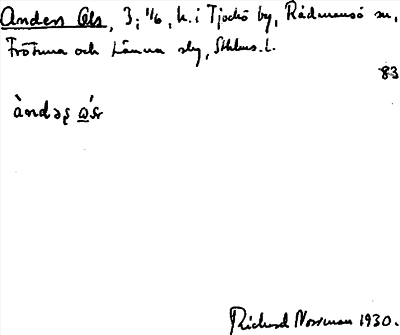 Anders Ols, 3; 1/6, h. i Tjockö by, Rådmansö sn,
Frötuna och Länna slg, Sthlms. l.
83
àndəʂ
Richard Norrman 1930.